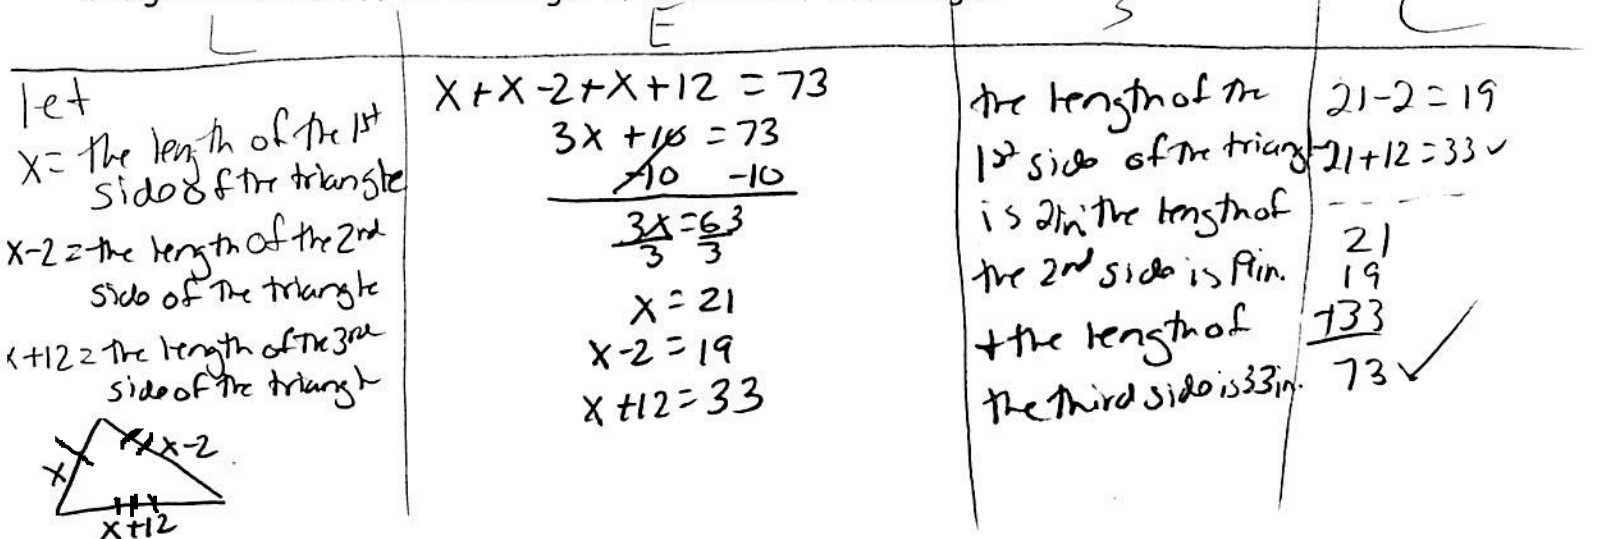 L E S C
let
x= the length of the 1st
side of the triangle
x-2=the length of the 2nd
side of the triangle
x+12=the length of the 3rd
side of the triangle
x
x-2
x+12
x+x-2+x+12=73
3x+10=73
-10 -10
3x=63
3 3
x=21
x-2=19
x+12=33
the length of the
1st side of the triangle
is 21in, the length of
the 2nd side is 19in.
+the length of
the third side is 33in.
21-2=19
21+12=33✓
21
19
+33
73✓